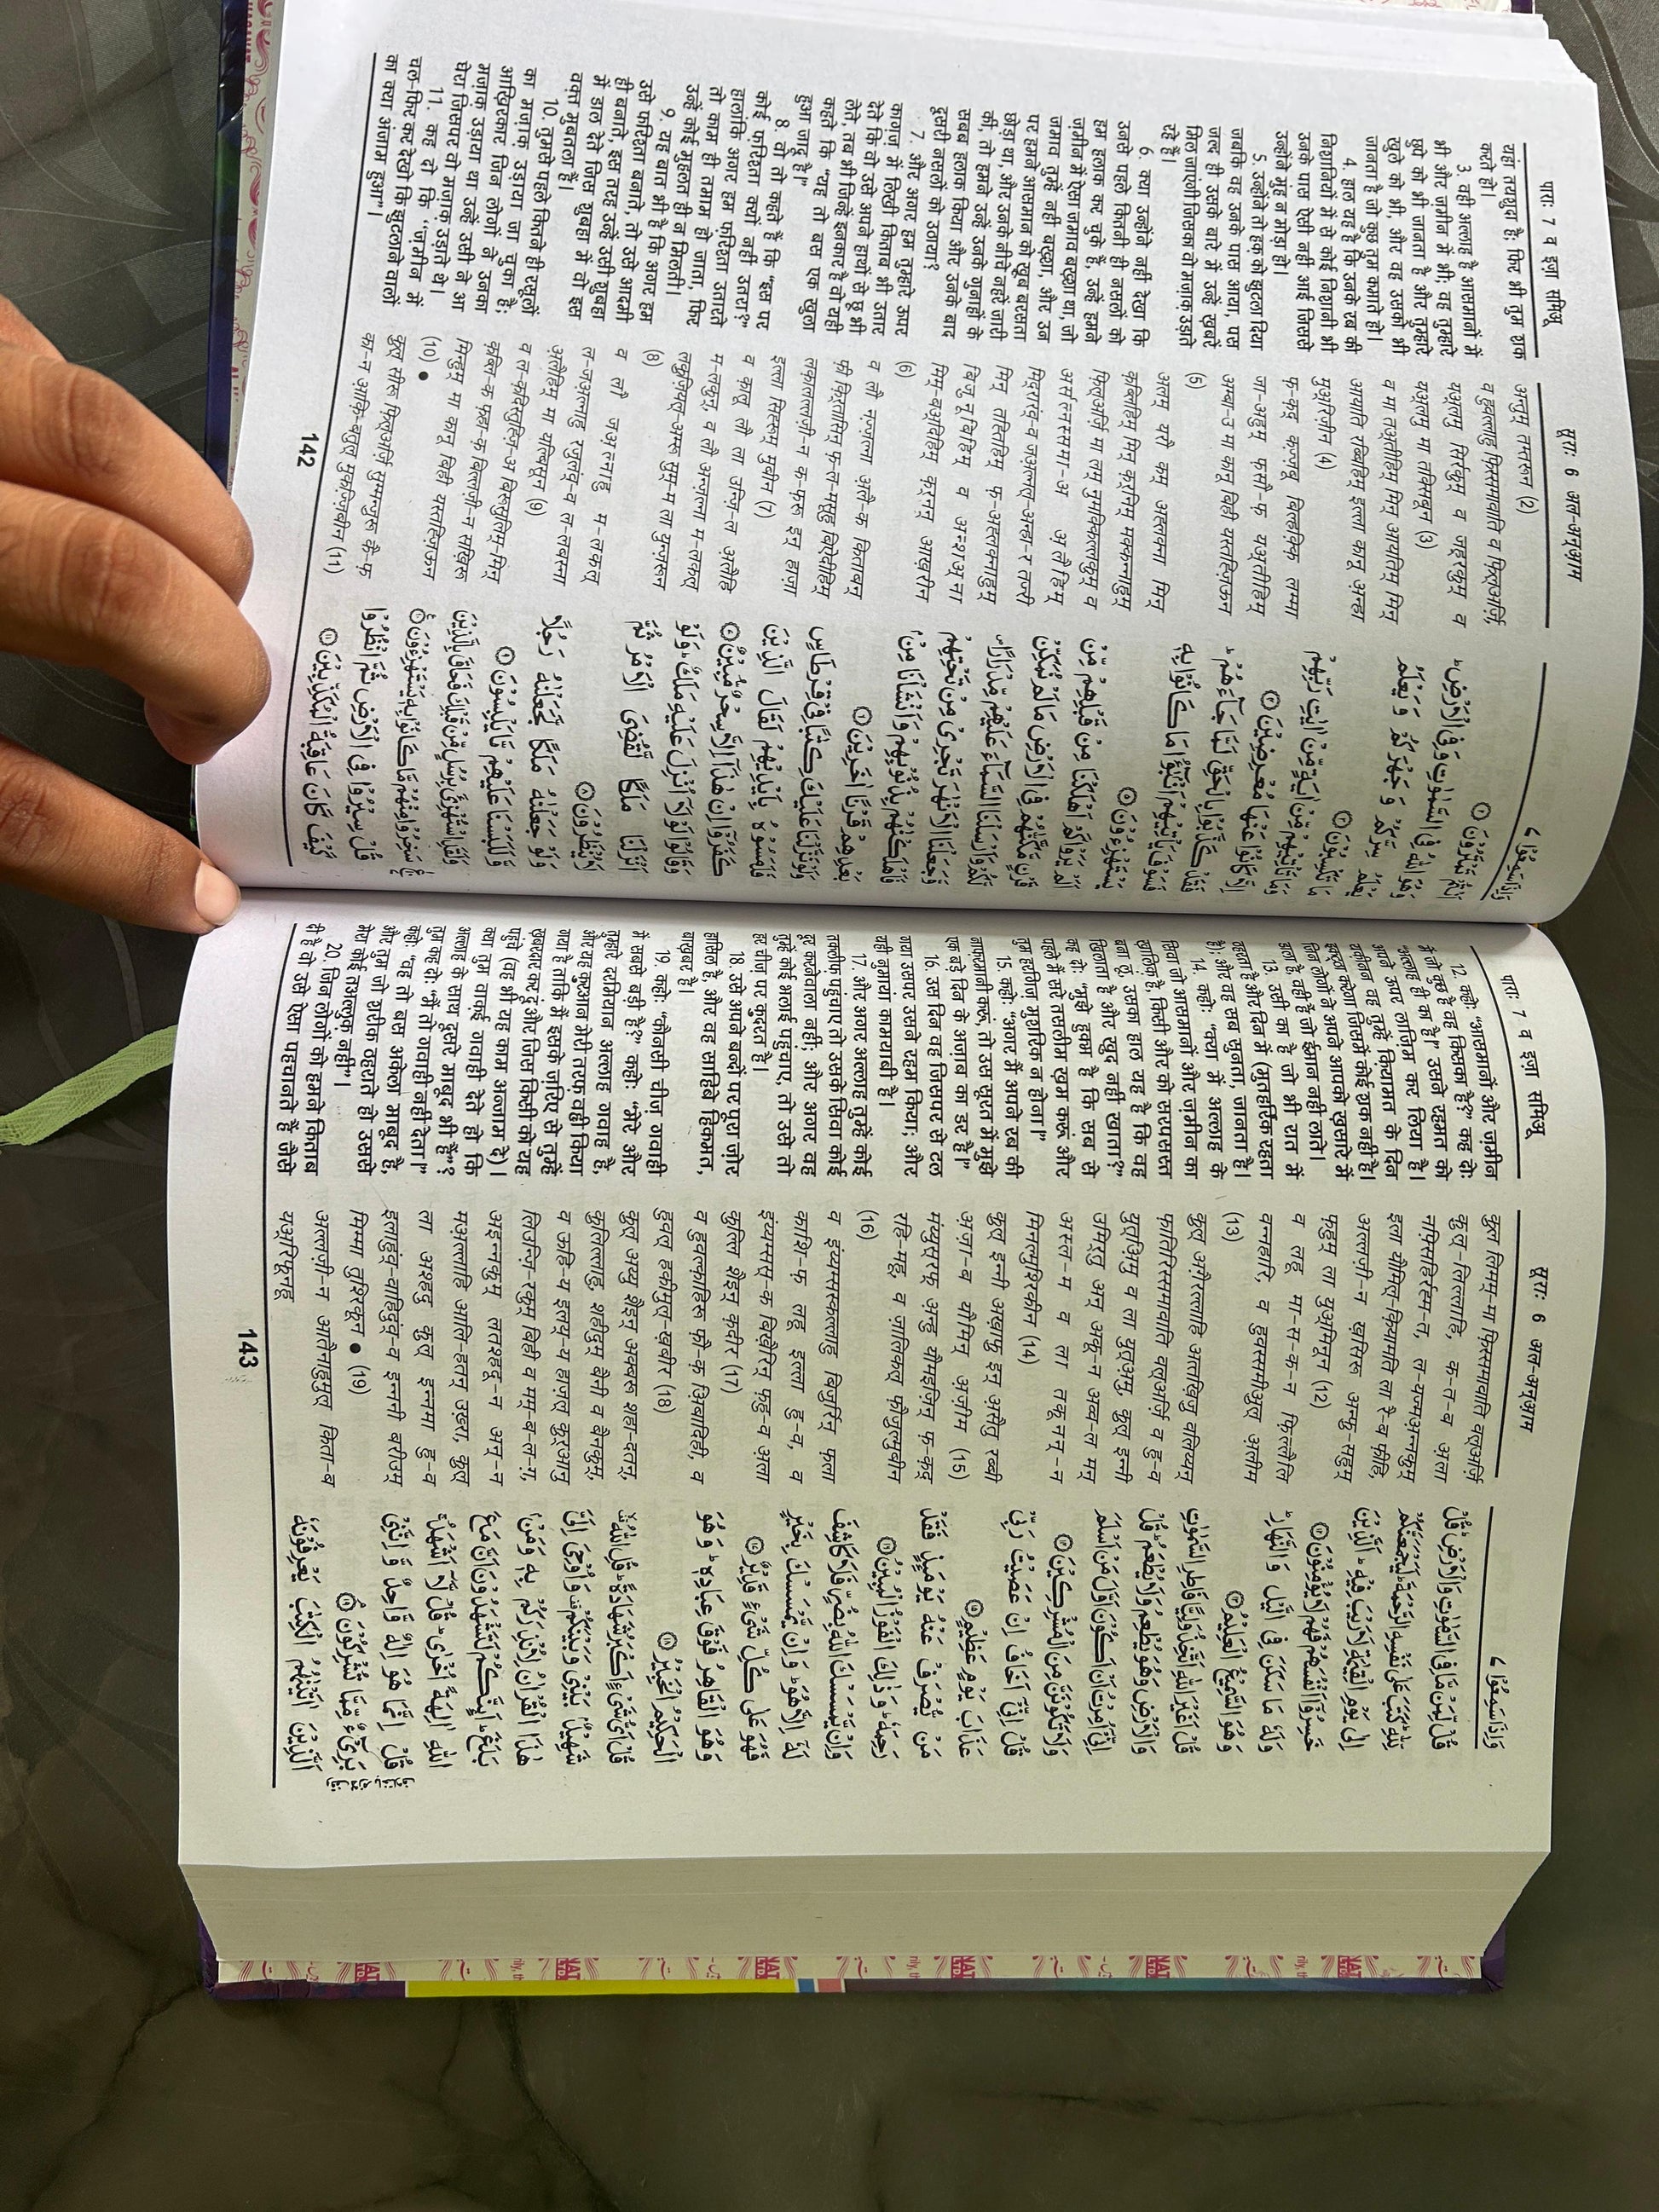 पारः 7 व इज़ा समिअू
यहां तयशुदा है; फिर भी तुम शक
करते हो।
3. वही अल्लाह है आसमानों में
भी और ज़मीन में भी; वह तुम्हारे
छुपे को भी जानता है और तुम्हारे
खुले को भी, और वह उसको भी
जानता है जो कुछ तुम कमाते हो।
4. हाल यह है कि उनके रब की
निशानियों में से कोई निशानी भी
उनके पास ऐसी नहीं आई जिससे
उन्होंने मुंह न मोड़ा हो।
5. उन्होंने तो हक़ को झुटला दिया
जबकि वह उनके पास आया, पस
जल्द ही उसके बारे में उन्हें ख़बरें
मिल जाएंगी जिसका वो मज़ाक़ उड़ाते
रहे हैं।
6. क्या उन्होंने नहीं देखा कि
उनसे पहले कितनी ही नसलों को
हम हलाक कर चुके हैं, उन्हें हमने
ज़मीन में ऐसा जमाव बख़्शा था, जो
जमाव तुम्हें नहीं बख़्शा, और उन
पर हमने आसमान को खूब बरसता
छोड़ा था, और उनके नीचे नहरें जारी
कीं, तो हमने उन्हें उनके गुनाहों के
सबब हलाक किया और उनके बाद
दूसरी नसलों को उठाया?
7. और अगर हम तुम्हारे ऊपर
काग़ज़ में लिखी किताब भी उतार
देते कि वो उसे अपने हाथों से छू भी
लेते, तब भी जिन्हें इनकार है वो यही
कहते कि "यह तो बस एक खुला
हुआ जादू है।"
8. वो तो कहते हैं कि "इस पर
कोई फ़रिश्ता क्यों नहीं उतरा?"
हालांकि अगर हम फ़रिश्ता उतारते
तो काम ही तमाम हो जाता, फिर
उन्हें कोई मुहलत ही न मिलती।
9. यह बात भी है कि अगर हम
उसे फ़रिश्ता बनाते, तो उसे आदमी
ही बनाते, इस तरह उन्हें उसी शुबहा
में डाल देते जिस शुबहा में वो इस
वक़्त मुबतला हैं।
10. तुमसे पहले कितने ही रसूलों
का मज़ाक़ उड़ाया जा चुका है;
आख़िरकार जिन लोगों ने उनका
मज़ाक़ उड़ाया था उन्हें उसी ने आ
घेरा जिसपर वो मज़ाक़ उड़ाते थे।
11. कह दो कि: "ज़मीन में
चल-फिर कर देखो कि झुटलाने वालों
का क्या अंजाम हुआ"।
सूरः 6 अल-अन्आम
अन्तुम् तम्तरून (2)
व हुवल्लाहु फिस्समावाति व फ़िल्अर्ज़ि,
यअ्लमु सिर्रकुम् व जह्रकुम् व
यअ्लमु मा तक्सिबून (3)
व मा तअ्तीहिम् मिन् आयतिम् मिन्
आयाति रब्बिहिम् इल्ला कानू अन्हा
मुअ्रिज़ीन (4)
फ़-क़द् कज़्ज़बू बिल्हक़्क़ि लम्मा
जा-अहुम् फ़सौ-फ़ यअ्तीहिम्
अम्बा-उ मा कानू बिही यस्तह्ज़िऊन
(5)
अलम् यरौ कम् अह्लक्ना मिन्
क़ब्लिहिम् मिन् क़र्निम् मक्कन्नाहुम्
फ़िल्अर्ज़ि मा लम् नुमक्किल्लकुम् व
अर्सल्नस्समा-अ अलैहिम्
मिद्रारंव्-व जअल्नल्-अन्हा-र तज्री
मिन् तह्तिहिम् फ़-अह्लक्नाहुम्
बिज़ुनूबिहिम् व अन्शअ्ना
मिम्-बअ्दिहिम् क़र्नन् आख़रीन
(6)
व लौ नज़्ज़ल्ना अलै-क किताबन्
फ़ी क़िर्तासिन् फ़-ल-मसूहु बिऐदीहिम्
लक़ालल्लज़ी-न क-फ़रू इन् हाज़ा
इल्ला सिह्रुम् मुबीन (7)
व क़ालू लौ ला उन्ज़ि-ल अलैहि
म-लकुन्, व लौ अन्ज़ल्ना म-लकल्
लक़ुज़ियल्-अम्रु सुम्-म ला युन्ज़रून
(8)
व लौ जअल्नाहु म-लकल्
ल-जअल्नाहु रजुलंव्-व ल-लबस्ना
अलैहिम् मा यल्बिसून (9)
व ल-क़दिस्तुह्ज़ि-अ बिरुसुलिम्-मिन्
क़ब्लि-क फ़हा-क़ बिल्लज़ी-न सख़िरू
मिन्हुम् मा कानू बिही यस्तह्ज़िऊन
(10) ●
क़ुल् सीरू फ़िल्अर्ज़ि सुम्मन्ज़ुरू कै-फ़
का-न आक़ि-बतुल् मुकज़्ज़िबीन (11)
وَاِذَا سَمِعُوْا ٧
اَنْتُمْ تَمْتَرُوْنَ ②
وَهُوَ اللّٰهُ فِى السَّمٰوٰتِ وَفِى الْاَرْضِ ؕ
يَعْلَمُ سِرَّكُمْ وَجَهْرَكُمْ وَيَعْلَمُ
مَا تَكْسِبُوْنَ ③
وَمَا تَاْتِيْهِمْ مِّنْ اٰيَةٍ مِّنْ اٰيٰتِ رَبِّهِمْ
اِلَّا كَانُوْا عَنْهَا مُعْرِضِيْنَ ④
فَقَدْ كَذَّبُوْا بِالْحَقِّ لَمَّا جَآءَهُمْ ؕ
فَسَوْفَ يَاْتِيْهِمْ اَنْۢبٰٓؤُا مَا كَانُوْا بِهٖ
يَسْتَهْزِءُوْنَ ⑤
اَلَمْ يَرَوْا كَمْ اَهْلَكْنَا مِنْ قَبْلِهِمْ مِّنْ
قَرْنٍ مَّكَّنّٰهُمْ فِى الْاَرْضِ مَا لَمْ نُمَكِّنْ
لَّكُمْ وَاَرْسَلْنَا السَّمَآءَ عَلَيْهِمْ مِّدْرَارًا ۪
وَّجَعَلْنَا الْاَنْهٰرَ تَجْرِىْ مِنْ تَحْتِهِمْ
فَاَهْلَكْنٰهُمْ بِذُنُوْبِهِمْ وَاَنْشَاْنَا مِنْۢ
بَعْدِهِمْ قَرْنًا اٰخَرِيْنَ ⑥
وَلَوْ نَزَّلْنَا عَلَيْكَ كِتٰبًا فِىْ قِرْطَاسٍ
فَلَمَسُوْهُ بِاَيْدِيْهِمْ لَقَالَ الَّذِيْنَ
كَفَرُوْٓا اِنْ هٰذَآ اِلَّا سِحْرٌ مُّبِيْنٌ ⑦
وَقَالُوْا لَوْلَآ اُنْزِلَ عَلَيْهِ مَلَكٌ ؕ وَلَوْ
اَنْزَلْنَا مَلَكًا لَّقُضِىَ الْاَمْرُ ثُمَّ
لَا يُنْظَرُوْنَ ⑧
وَلَوْ جَعَلْنٰهُ مَلَكًا لَّجَعَلْنٰهُ رَجُلًا
وَّلَلَبَسْنَا عَلَيْهِمْ مَّا يَلْبِسُوْنَ ⑨
وَلَقَدِ اسْتُهْزِئَ بِرُسُلٍ مِّنْ قَبْلِكَ فَحَاقَ بِالَّذِيْنَ
سَخِرُوْا مِنْهُمْ مَّا كَانُوْا بِهٖ يَسْتَهْزِءُوْنَ ⑩
قُلْ سِيْرُوْا فِى الْاَرْضِ ثُمَّ انْظُرُوْا
كَيْفَ كَانَ عَاقِبَةُ الْمُكَذِّبِيْنَ ⑪
142
पारः 7 व इज़ा समिअू
12. कहो: "आसमानों और ज़मीन
में जो कुछ है वह किसका है?" कह दो:
"अल्लाह ही का है।" उसने रहमत को
अपने ऊपर लाज़िम कर लिया है।
यक़ीनन वह तुम्हें क़ियामत के दिन
इकट्ठा करेगा जिसमें कोई शक नहीं है।
जिन लोगों ने अपने आपको ख़सारे में
डाला है वही हैं जो ईमान नहीं लाते।
13. उसी का है जो भी रात में
रहता है और दिन में (मुतहर्रिक रहता
है); और वह सब सुनता, जानता है।
14. कहो: "क्या मैं अल्लाह के
सिवा जो आसमानों और ज़मीन का
ख़ालिक़ है, किसी और को सरपरस्त
बना लूं? उसका हाल यह है कि वह
खिलाता है और खुद नहीं खाता?"
कह दो: "मुझे हुक्म है कि सब से
पहले मैं सरे तसलीम ख़म करूं और
तुम हरगिज़ मुशरिक न होना।"
15. कहो: "अगर मैं अपने रब की
नाफ़रमानी करूं, तो उस सूरत में मुझे
एक बड़े दिन के अज़ाब का डर है।"
16. उस दिन वह जिसपर से टल
गया उसपर उसने रहम किया; और
यही नुमायां कामयाबी है।
17. और अगर अल्लाह तुम्हें कोई
तकलीफ़ पहुंचाए तो उसके सिवा कोई
दूर करनेवाला नहीं; और अगर वह
तुम्हें कोई भलाई पहुंचाए, तो उसे तो
हर चीज़ पर क़ुदरत है।
18. उसे अपने बन्दों पर पूरा ज़ोर
हासिल है, और वह साहिबे हिकमत,
बाख़बर है।
19. कहो: "कौनसी चीज़ गवाही
में सबसे बड़ी है?" कहो: "मेरे और
तुम्हारे दरमियान अल्लाह गवाह है,
और यह क़ुरआन मेरी तरफ़ वही किया
गया है ताकि मैं इसके ज़रिये से तुम्हें
ख़बरदार करदूं और जिस किसी को यह
पहुंचे (वह भी यह काम अन्जाम दे)।
क्या तुम वाक़ई गवाही देते हो कि
अल्लाह के साथ दूसरे माबूद भी हैं"?
तुम कह दो: "मैं तो गवाही नहीं देता।"
कहो: "वह तो बस अकेला माबूद है,
और तुम जो शरीक ठहराते हो उससे
मेरा कोई तअल्लुक़ नहीं"।
20. जिन लोगों को हमने किताब
दी है वो उसे ऐसा पहचानते हैं जैसे
सूरः 6 अल-अन्आम
क़ुल लिमम्-मा फ़िस्समावाति वल्अर्ज़ि
क़ुल्-लिल्लाहि, क-त-ब अला
नफ़्सिहिर्रह्म-त, ल-यज्मअन्नकुम्
इला यौमिल्-क़ियामति ला रै-ब फ़ीहि,
अल्लज़ी-न ख़सिरू अन्फु-सहुम्
फ़हुम् ला युअ्मिनून (12)
व लहू मा-स-क-न फ़िल्लैलि
वन्नहारि, व हुवस्समीउल् अलीम
(13)
क़ुल् अग़ैरल्लाहि अत्तख़िज़ु वलिय्यन्
फ़ातिरिस्समावाति वल्अर्ज़ि व हु-व
युत्अिमु व ला युत्अमु, क़ुल् इन्नी
उमिर्तु अन् अकू-न अव्व-ल मन्
अस्ल-म व ला तकूनन्-न
मिनल्मुश्रिकीन (14)
क़ुल् इन्नी अख़ाफ़ु इन् असैतु रब्बी
अज़ा-ब यौमिन् अज़ीम (15)
मंय्युस्रफ़् अन्हु यौमइज़िन् फ़-क़द्
रहि-महू, व ज़ालिकल् फ़ौज़ुल्मुबीन
(16)
व इंय्यम्सस्कल्लाहु बिज़ुर्रिन् फ़ला
काशि-फ़ लहू इल्ला हु-व, व
इंय्यम्सस्-क बिख़ैरिन् फ़हु-व अला
कुल्लि शैइन् क़दीर (17)
व हुवल्क़ाहिरु फ़ौ-क़ अिबादिही, व
हुवल् हकीमुल्-ख़बीर (18)
क़ुल् अय्यु शैइन् अक्बरु शहा-दतन्,
क़ुलिल्लाहु, शहीदुम् बैनी व बैनकुम्,
व ऊहि-य इलय्-य हाज़ल् क़ुर्आनु
लिउन्ज़ि-रकुम् बिही व मम्-ब-ल-ग़,
अइन्नकुम् लतश्हदू-न अन्-न
मअल्लाहि आलि-हतन् उख़्रा, क़ुल्
ला अश्हदु क़ुल् इन्नमा हु-व
इलाहुंव्-वाहिदुंव्-व इन्ननी बरीउम्
मिम्मा तुश्रिकून ● (19)
अल्लज़ी-न आतैनाहुमुल् किता-ब
यअ्रिफ़ूनहू
وَاِذَا سَمِعُوْا ٧
قُلْ لِّمَنْ مَّا فِى السَّمٰوٰتِ وَالْاَرْضِ ؕ قُلْ
لِّلّٰهِ ؕ كَتَبَ عَلٰى نَفْسِهِ الرَّحْمَةَ ؕ لَيَجْمَعَنَّكُمْ
اِلٰى يَوْمِ الْقِيٰمَةِ لَا رَيْبَ فِيْهِ ؕ اَلَّذِيْنَ
خَسِرُوْٓا اَنْفُسَهُمْ فَهُمْ لَا يُؤْمِنُوْنَ ⑫
وَلَهٗ مَا سَكَنَ فِى الَّيْلِ وَالنَّهَارِ ؕ
وَهُوَ السَّمِيْعُ الْعَلِيْمُ ⑬
قُلْ اَغَيْرَ اللّٰهِ اَتَّخِذُ وَلِيًّا فَاطِرِ السَّمٰوٰتِ
وَالْاَرْضِ وَهُوَ يُطْعِمُ وَلَا يُطْعَمُ ؕ قُلْ
اِنِّىْٓ اُمِرْتُ اَنْ اَكُوْنَ اَوَّلَ مَنْ اَسْلَمَ
وَلَا تَكُوْنَنَّ مِنَ الْمُشْرِكِيْنَ ⑭
قُلْ اِنِّىْٓ اَخَافُ اِنْ عَصَيْتُ رَبِّىْ
عَذَابَ يَوْمٍ عَظِيْمٍ ⑮
مَنْ يُّصْرَفْ عَنْهُ يَوْمَئِذٍ فَقَدْ
رَحِمَهٗ ؕ وَذٰلِكَ الْفَوْزُ الْمُبِيْنُ ⑯
وَاِنْ يَّمْسَسْكَ اللّٰهُ بِضُرٍّ فَلَا كَاشِفَ
لَهٗٓ اِلَّا هُوَ ؕ وَاِنْ يَّمْسَسْكَ بِخَيْرٍ
فَهُوَ عَلٰى كُلِّ شَىْءٍ قَدِيْرٌ ⑰
وَهُوَ الْقَاهِرُ فَوْقَ عِبَادِهٖ ؕ وَهُوَ
الْحَكِيْمُ الْخَبِيْرُ ⑱
قُلْ اَىُّ شَىْءٍ اَكْبَرُ شَهَادَةً ؕ قُلِ اللّٰهُ ۙ
شَهِيْدٌۢ بَيْنِىْ وَبَيْنَكُمْ ۫ وَاُوْحِىَ اِلَىَّ
هٰذَا الْقُرْاٰنُ لِاُنْذِرَكُمْ بِهٖ وَمَنْۢ
بَلَغَ ؕ اَئِنَّكُمْ لَتَشْهَدُوْنَ اَنَّ مَعَ
اللّٰهِ اٰلِهَةً اُخْرٰى ؕ قُلْ لَّآ اَشْهَدُ ۚ
قُلْ اِنَّمَا هُوَ اِلٰهٌ وَّاحِدٌ وَّاِنَّنِىْ
بَرِىْٓءٌ مِّمَّا تُشْرِكُوْنَ ⑲
اَلَّذِيْنَ اٰتَيْنٰهُمُ الْكِتٰبَ يَعْرِفُوْنَهٗ
143